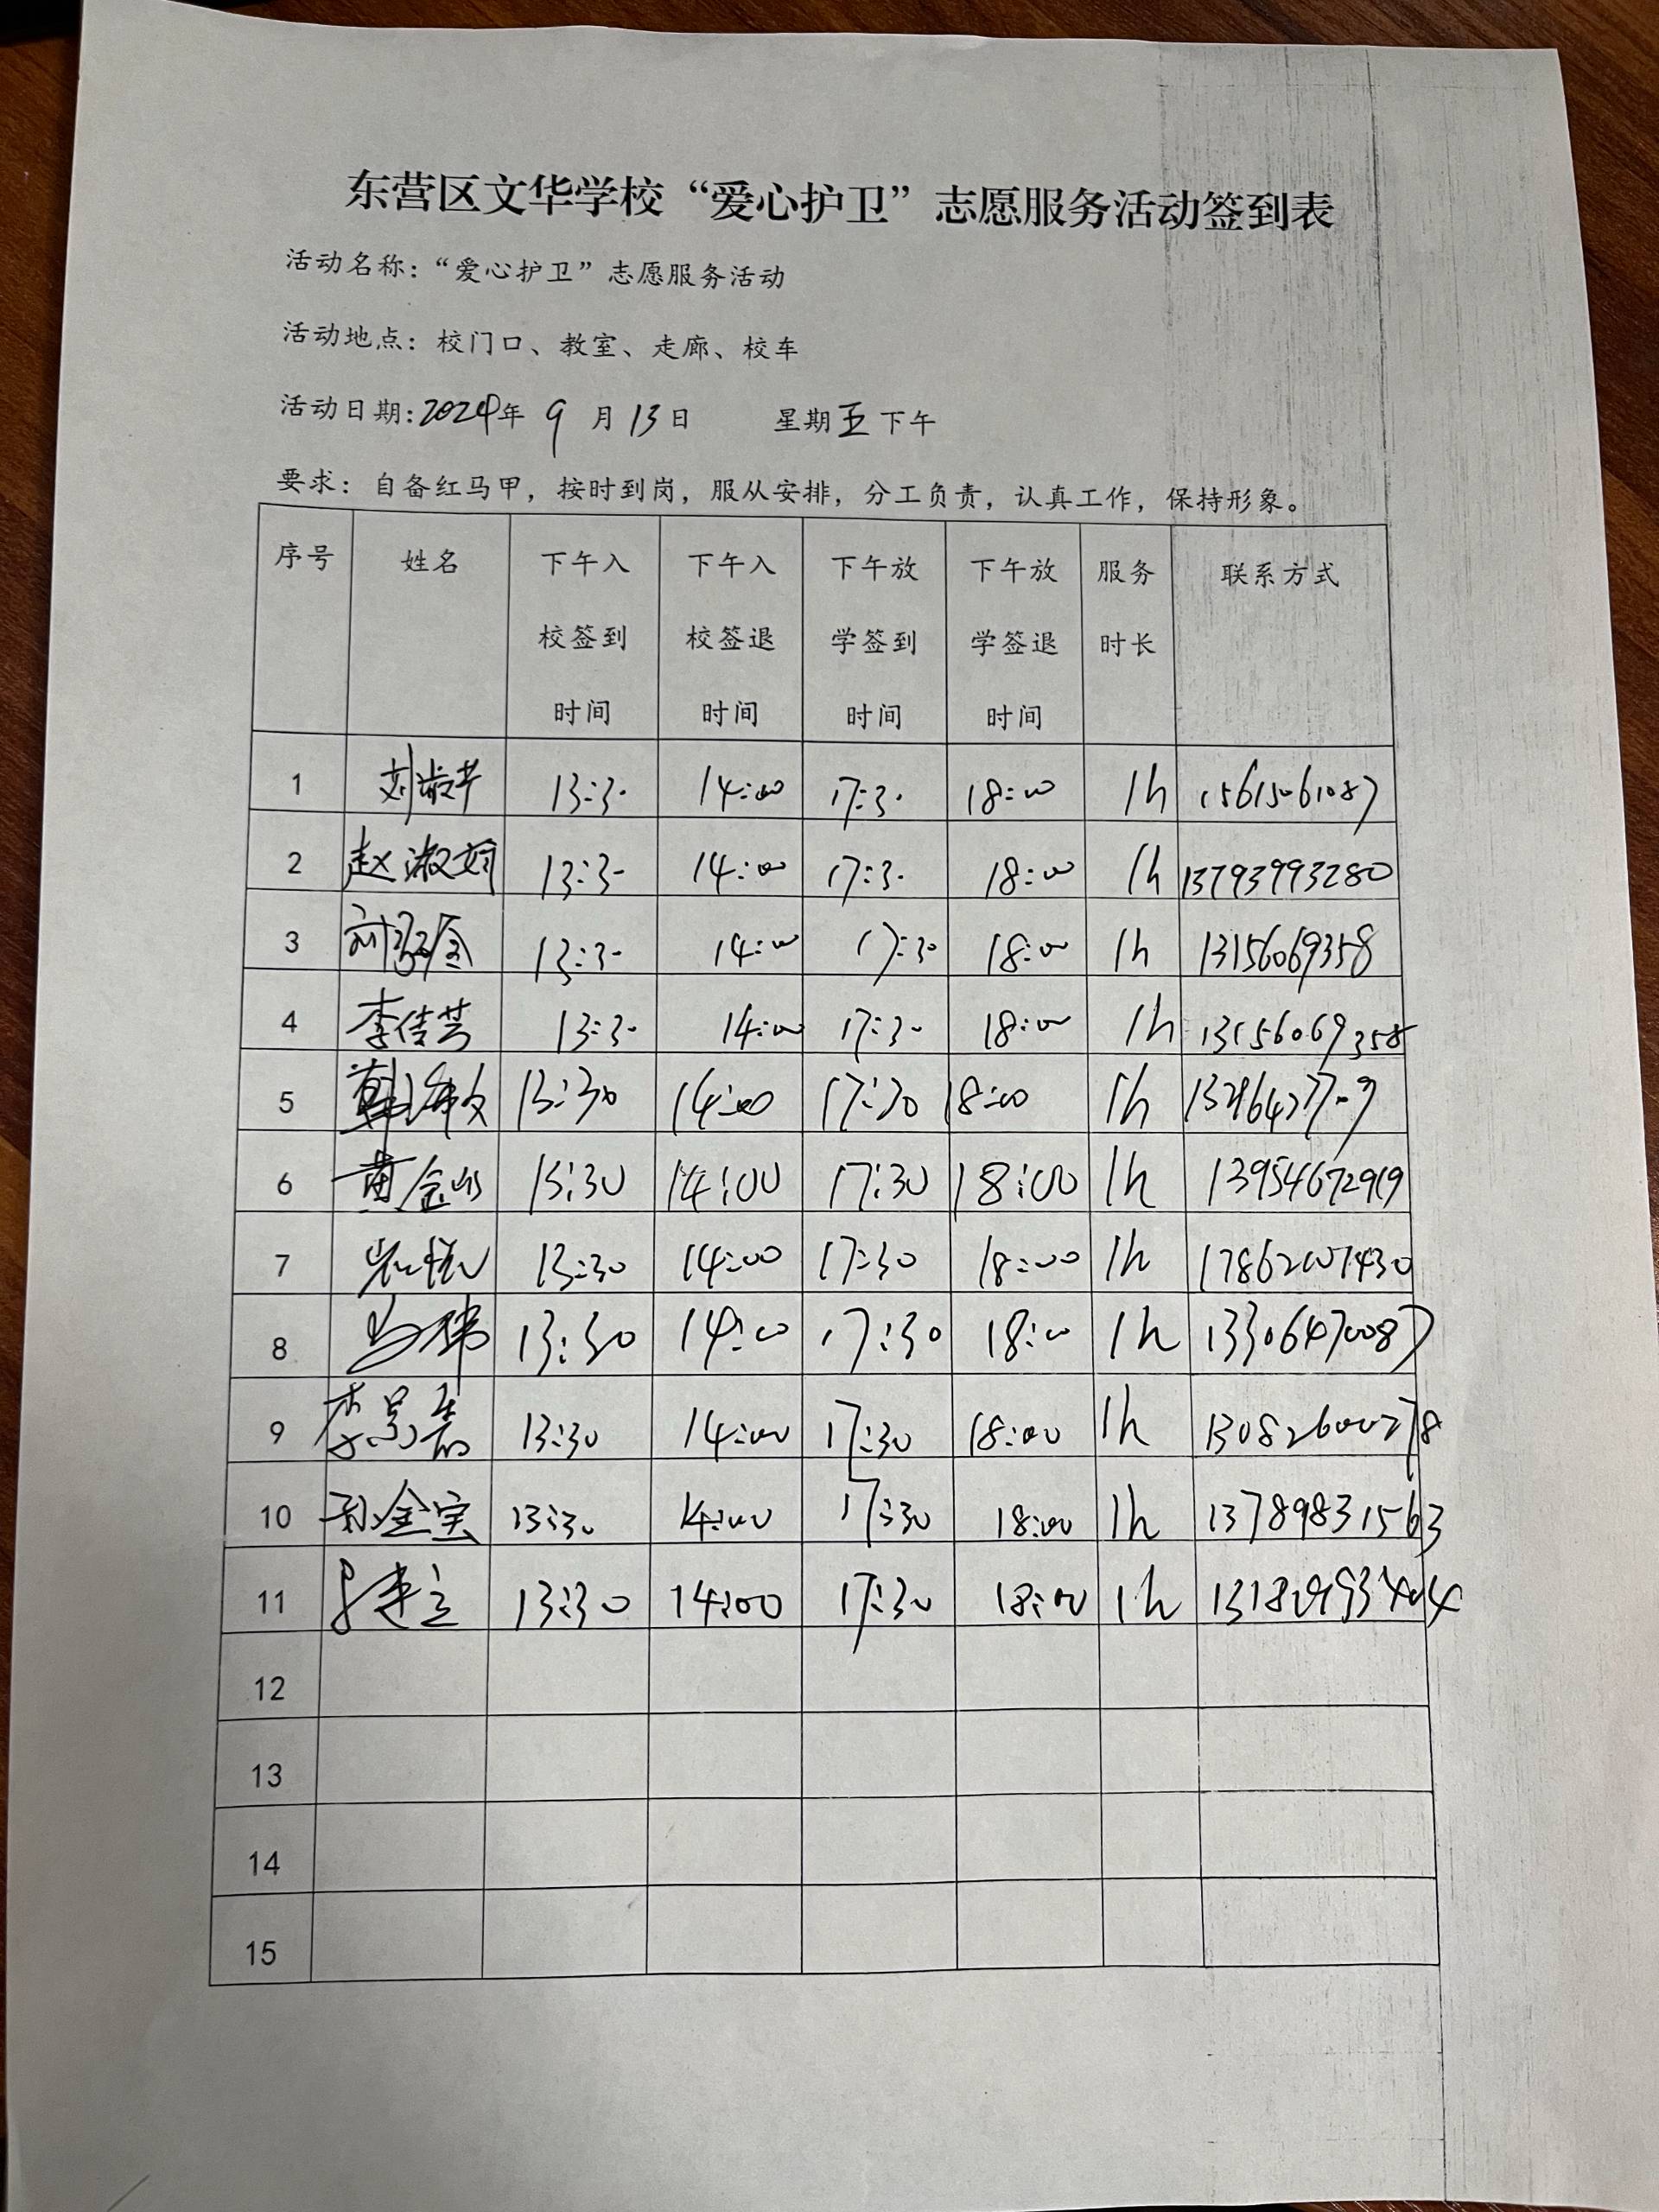 东营区文华学校“爱心护卫”志愿服务活动签到表
活动名称：“爱心护卫”志愿服务活动
活动地点：校门口、教室、走廊、校车
活动日期：2024年 9 月 13 日 星期五下午
要求：自备红马甲，按时到岗，服从安排，分工负责，认真工作，保持形象。
序号 姓名 下午入校签到时间 下午入校签退时间 下午放学签到时间 下午放学签退时间 服务时长 联系方式
1 刘淑芹 13:30 14:00 17:30 18:00 1h 15615061087
2 赵淑娟 13:30 14:00 17:30 18:00 1h 13793993280
3 13:30 14:00 17:30 18:00 1h 13156069358
4 李佳芸 13:30 14:00 17:30 18:00 1h 13156069358
5 13:30 14:00 17:30 18:00 1h
6 黄金山 13:30 14:00 17:30 18:00 1h 13954672919
7 13:30 14:00 17:30 18:00 1h 17862007430
8 马伟 13:30 14:00 17:30 18:00 1h 13306470087
9 李景嘉 13:30 14:00 17:30 18:00 1h 13082600278
10 孙金宝 13:30 14:00 17:30 18:00 1h 13789831563
11 13:30 14:00 17:30 18:00 1h
12
13
14
15